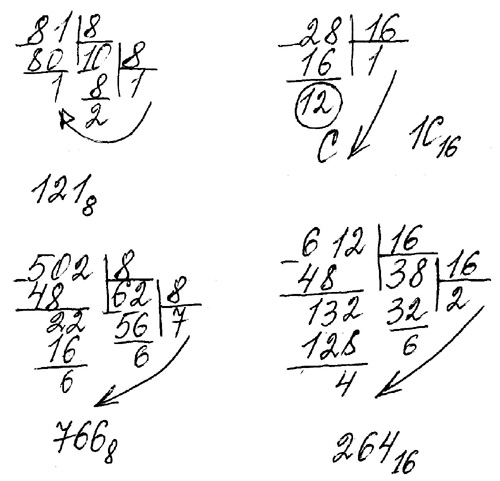 81 | 8
80 | 10 | 8
1 | 8 | 1
2
121₈
28 | 16
16 | 1
12
C
1C₁₆
502 | 8
48 | 62 | 8
22 | 56 | 7
16 | 6
6
766₈
612 | 16
48 | 38 | 16
132 | 32 | 2
128 | 6
4
264₁₆